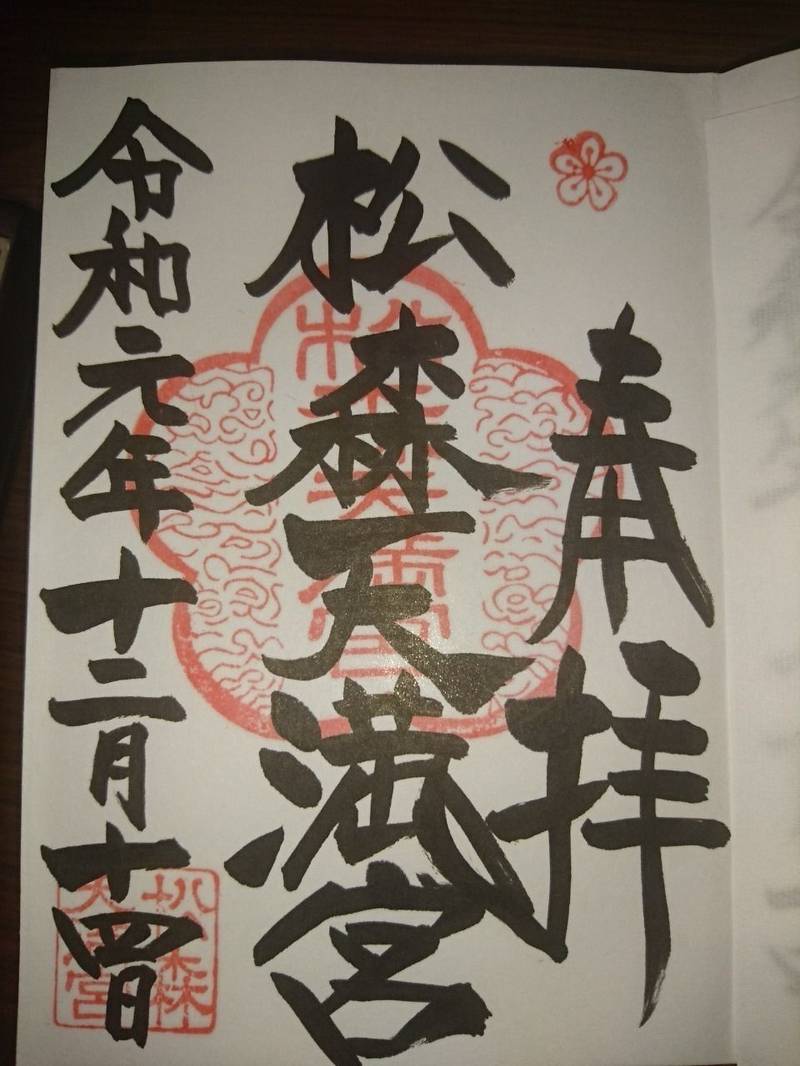 奉拝
松森天満宮
令和元年十二月十四日
松森
天満宮